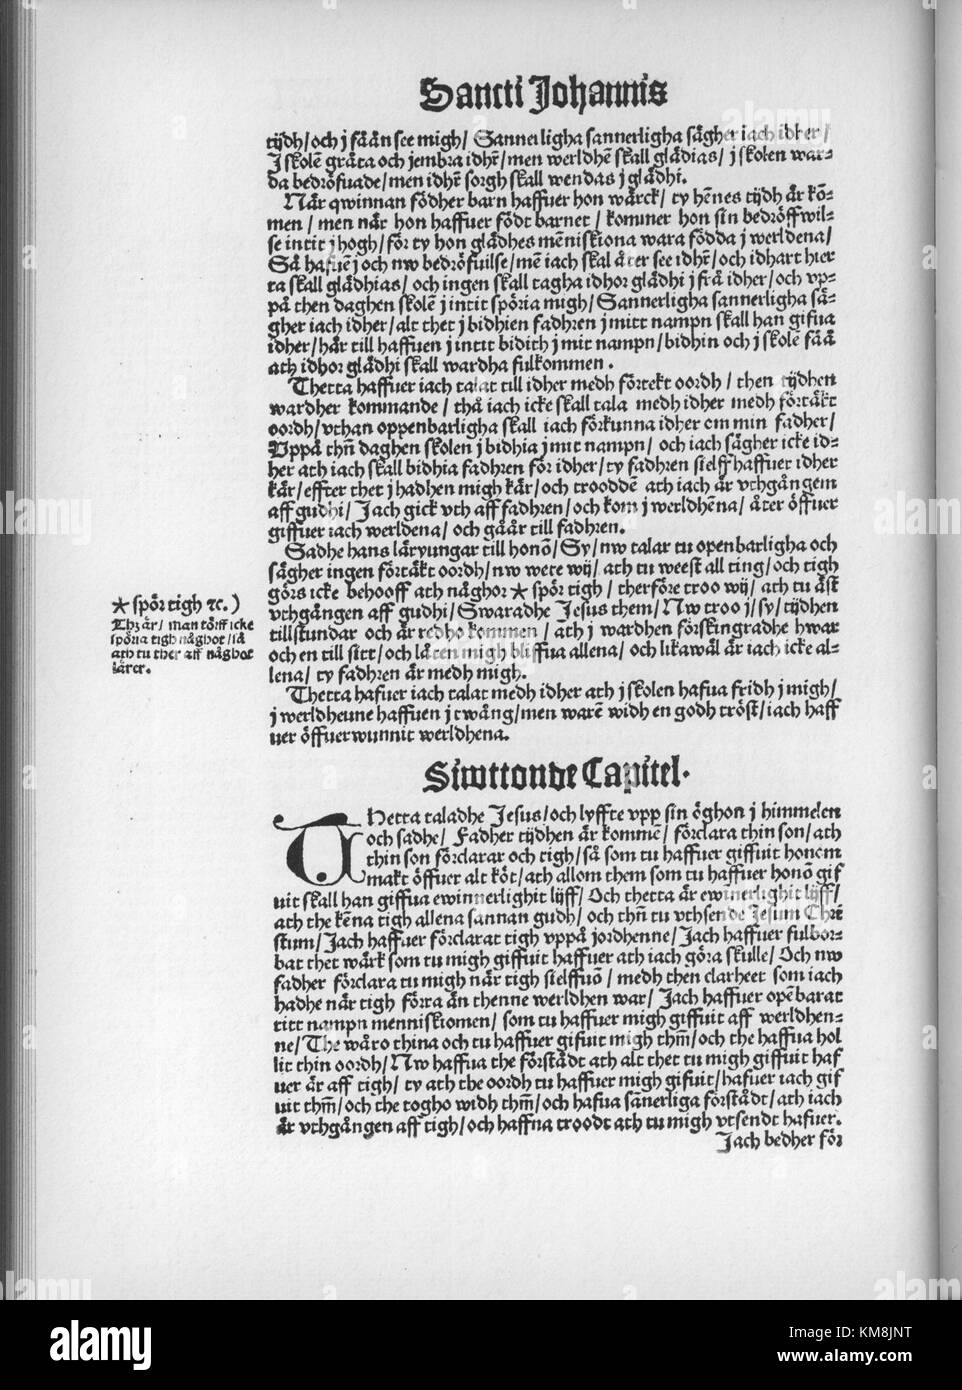 Sancti Johannis
tijdh/och j fåån see migh/ Sannerligha sannerligha sägher iach idher/
J skolẽ gråta och jembra idhr̃/men werldhẽ skall glädias/ j skolen war-
da bedröfuade/men idhr̃ sorgh skall wendas j glädhi.
När qwinnan födher barn haffuer hon wärck/ ty hẽnes tijdh är kõ-
men/ men när hon haffuer födt barnet/ kommer hon sin bedröffwil-
se intit jhogh/för ty hon glädhes mẽniskiona wara födda j werldena/
Så hafuẽ j och nw bedröfuilse/mẽ iach skal åter see idhr̃/och idhart hier
ta skall glädhias/ och ingen skall tagha idhor glädhi j frå idher/och vp-
på then daghen skolẽ j intit spöria migh/Sannerligha sannerligha sä-
gher iach idher/alt thet j bidhien fadhren j mitt nampn skall han gifua
idher/här till haffuen j intit bidith j mit nampn/bidhin och j skolẽ fåå
ath idhor glädhi skall wardha fulkommen.
Thetta haffuer iach talat till idher medh förtekt oordh/ then tijdhen
wardher kommande/ thå iach icke skall tala medh idher medh förtäkt
oordh/vthan oppenbarligha skall iach förkunna idher om min fadher/
Vppå thñ daghen skolen j bidhia j mit nampn/ och iach sägher icke id-
her ath iach skall bidhia fadhren för idher/ty fadhren sielff haffuer idher
kär/effter thet j hadhen migh kär/och trooddẽ ath iach är vthgångem
aff gudhi/ Jach gick vth aff fadhren/och kom j werldhẽna/ åter öffuer
giffuer iach werldena/och gåår till fadhren.
Sadhe hans läryungar till honõ/Sy/nw talar tu openbarligha och
sägher ingen förtäkt oordh/nw wete wij/ ath tu weest all ting/och tigh
görs icke behooff ath någhor * spör tigh/ therföre troo wij/ ath tu äst
vthgången aff gudhi/Swaradhe Jesus them/Nw troo j/sy/tijdhen
tillstundar och är redho kommen/ath j wardhen förskingradhe hwar
och en till sitt/och låten migh bliffua allena/och likawäl är iach icke al-
lena/ty fadhren är medh migh.
Thetta hafuer iach talat medh idher ath j skolen hafua fridh j migh/
j werldhenne haffuen j twång/men warẽ widh en godh tröst/iach haff
uer öffuerwunnit werldhena.
* spör tigh ꝛc.)
Thz är/ man törff icke
spöria tigh någhot/så
ath tu ther aff någhot
lärer.
Siwttonde Capitel.
THetta taladhe Jesus/och lyffte vpp sin öghon j himmelen
och sadhe/ Fadher tijdhen är kommẽ/ förclara thin son/ath
thin son förclarar och tigh/så som tu haffuer giffuit honom
makt öffuer alt köt/ath allom them som tu haffuer honõ gif
uit skall han giffua ewinnerlighit lijff/ Och thetta är ewinerlighit lijff/
ath the kẽna tigh allena sannan gudh/ och thñ tu vthsende Jesum Chri
stum/Jach haffuer förclarat tigh vppå jordhenne/Jach haffuer fulbor-
bat thet wärk som tu migh giffuit haffuer ath iach göra skulle/ Och nw
fadher förclara tu migh när tigh sielffuõ/ medh then clarheet som iach
hadhe när tigh förra än thenne werldhen war/ Jach haffuer opẽbarat
titt nampn menniskiomen/ som tu haffuer migh giffuit aff werldhen-
ne/The wåro thina och tu haffuer gifuit migh thm̃/och the haffua hol
lit thin oordh/Nw haffua the förstådt ath alt thet tu migh giffuit haf
uer är aff tigh/ ty ath the oordh tu haffuer migh gifuit/hafuer iach gif
uit thm̃/och the togho widh thm̃/och hafua sãnerliga förstådt/ath iach
är vthgången aff tigh/och haffua troodt ath tu migh vtsendt hafuer.
Jach bedher för
alamy
Image ID: KM8JNT
www.alamy.com